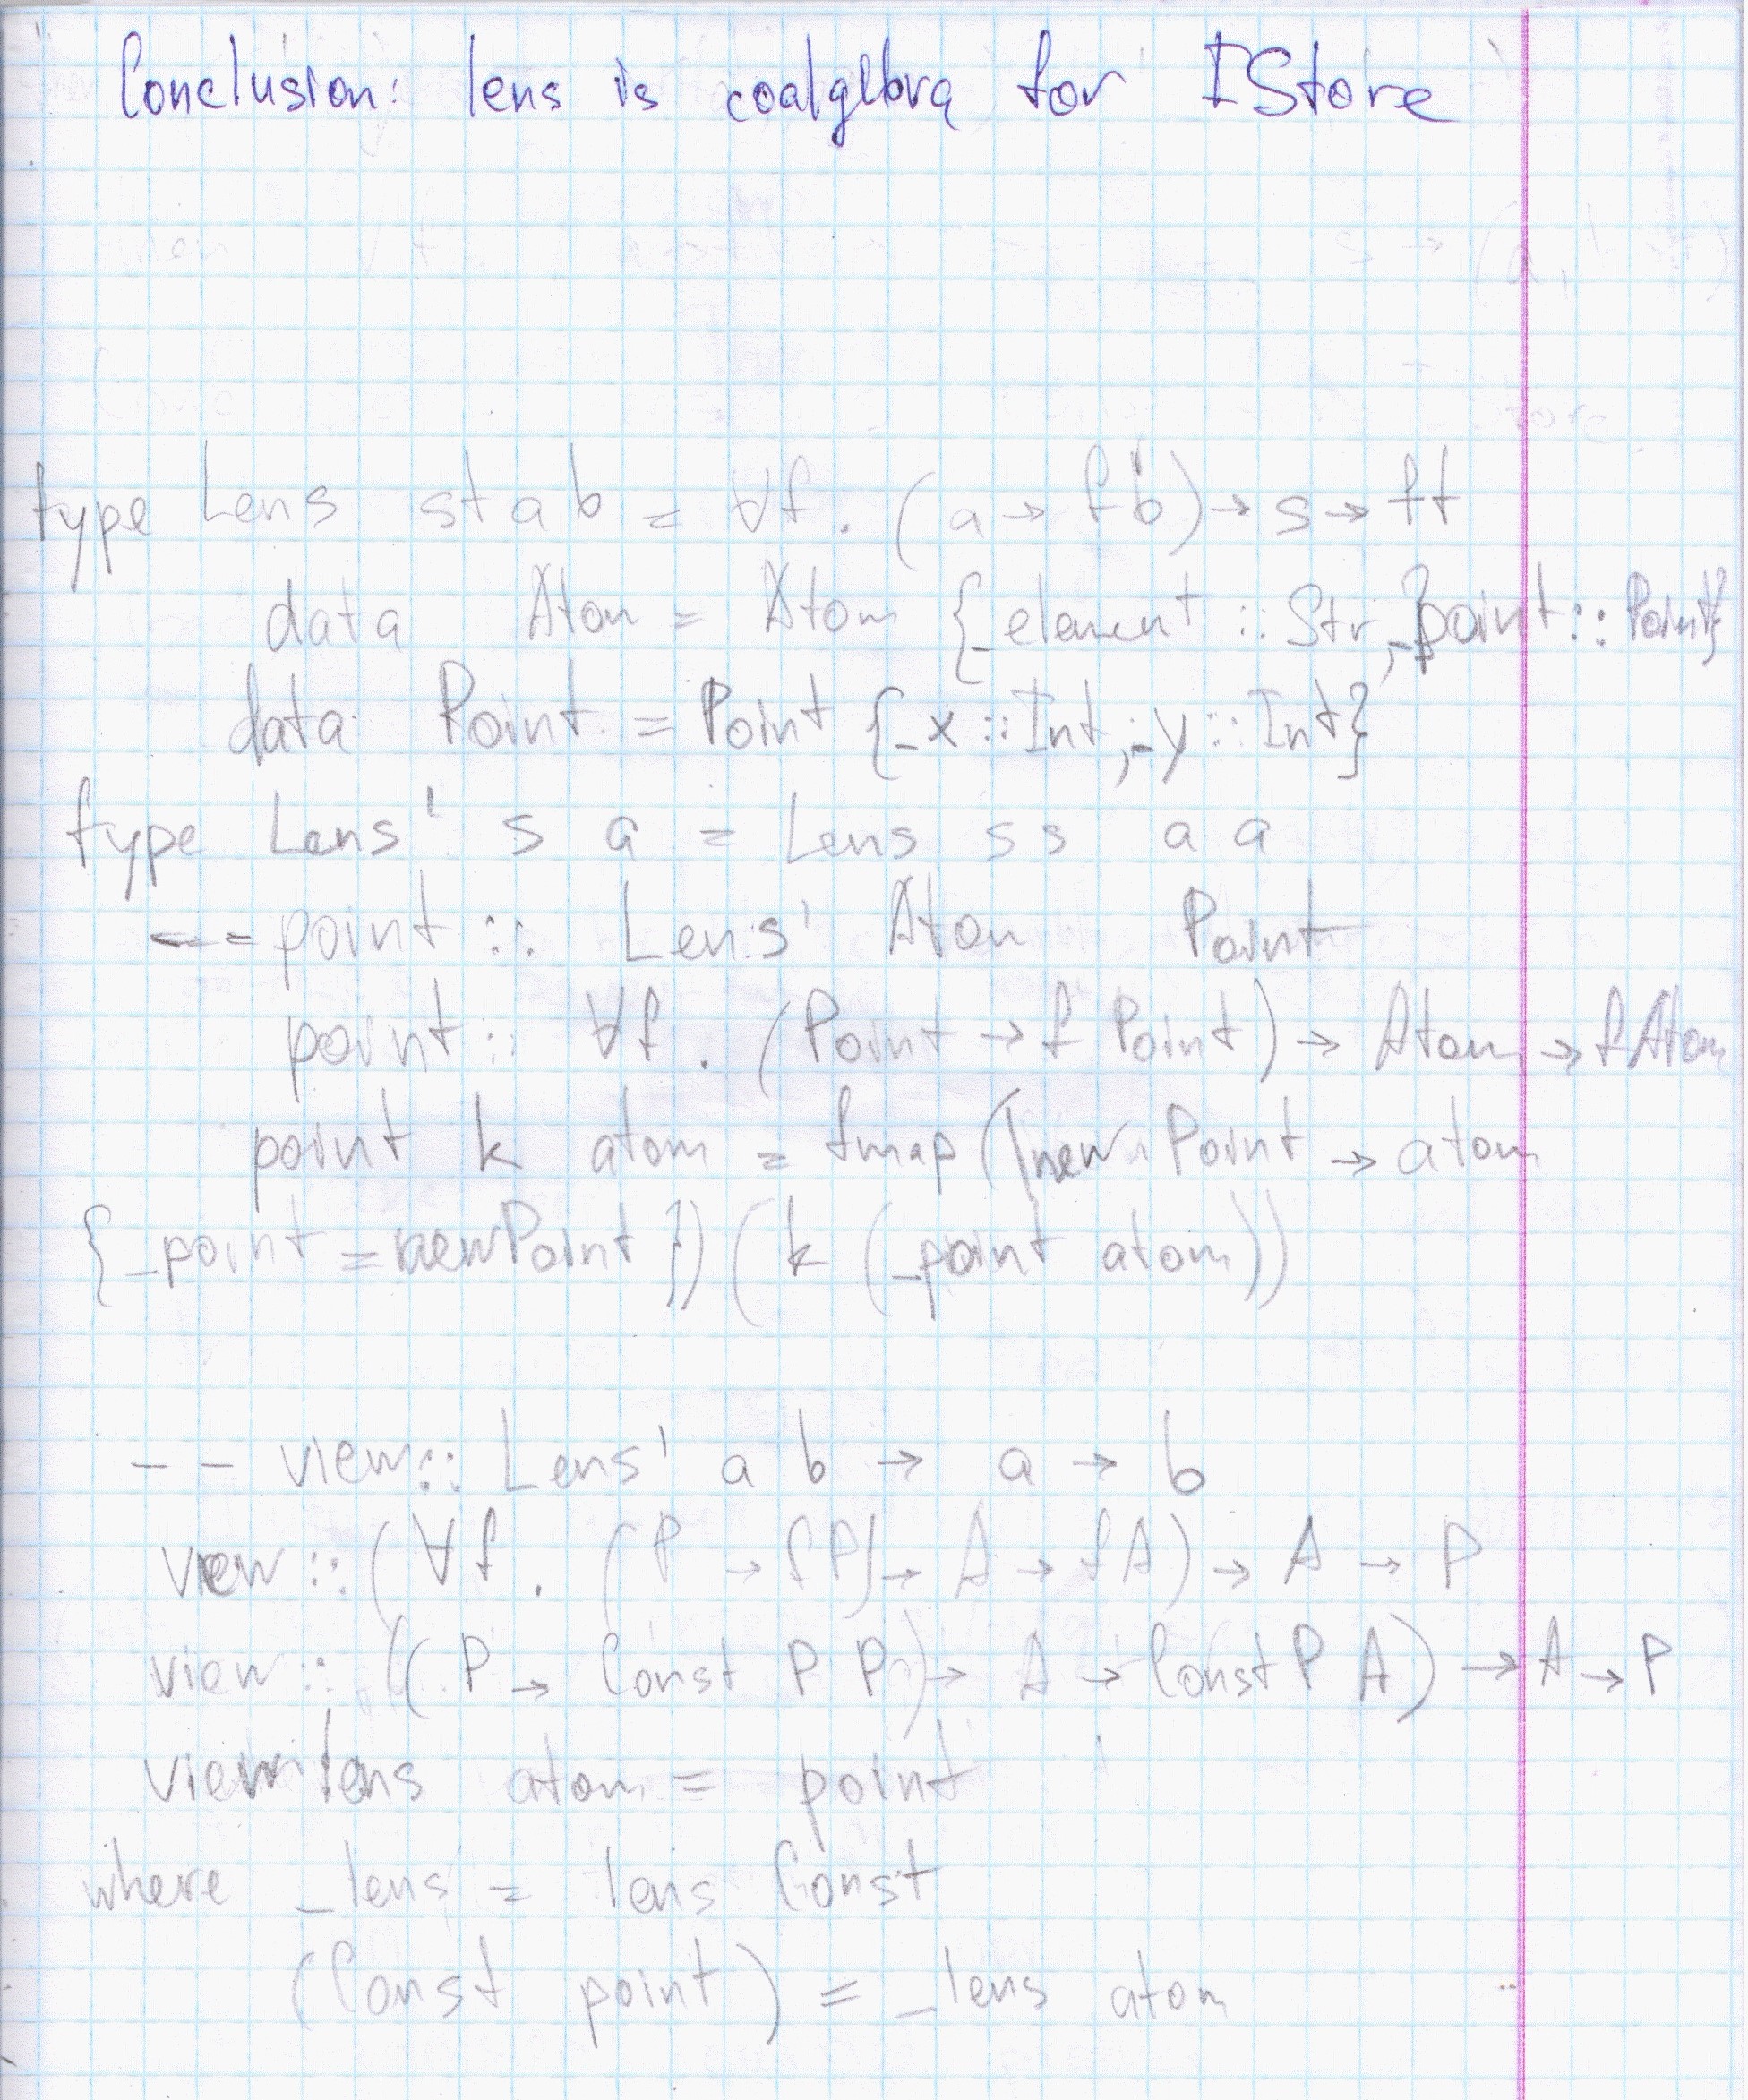 Conclusion: lens is coalgebra for IStore
type Lens s t a b = ∀f. (a → f b) → s → f t
data Atom = Atom {_element :: Str, _point :: Point}
data Point = Point {_x :: Int, _y :: Int}
type Lens' s a = Lens s s a a
-- point :: Lens' Atom Point
point :: ∀f. (Point → f Point) → Atom → f Atom
point k atom = fmap (\newPoint → atom
{_point = newPoint}) (k (_point atom))
-- view :: Lens' a b → a → b
view :: (∀f. (P → f P) → A → f A) → A → P
view :: ((P → Const P P) → A → Const P A) → A → P
view lens atom = point
where _lens = lens Const
(Const point) = _lens atom